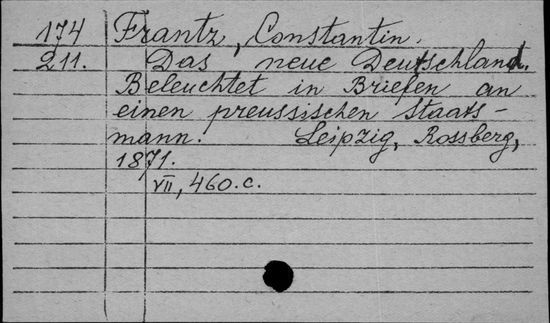 174 Frantz, Constantin.
211. Das neue Deutschland.
Beleuchtet in Briefen an
einen preussischen Staats-
mann. Leipzig, Rossberg,
1871.
VII, 460.c.